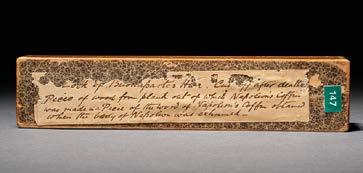 Lock of Buonaparte's Hair. Cut off after death
Piece of wood from plank out of which Napoleon's Coffin
was made. Piece of the wood of Napoleon's Coffin obtained
when the body of Napoleon was exhumed.
147